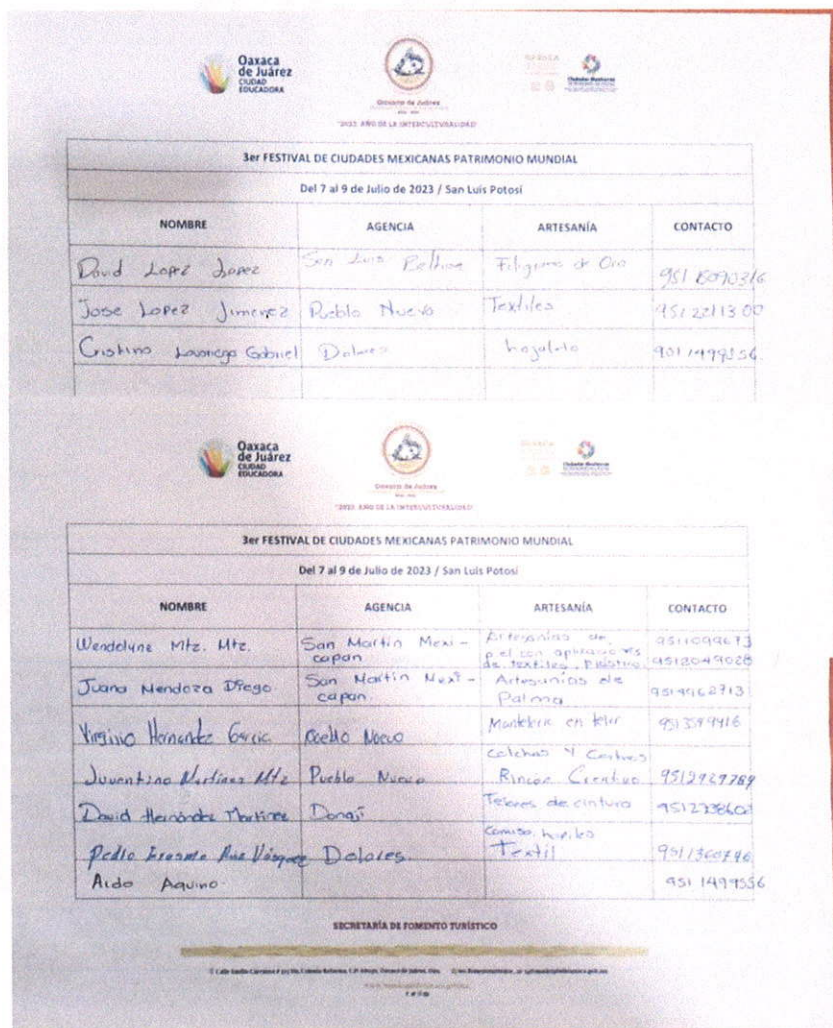 Oaxaca
de Juárez
CIUDAD
EDUCADORA
Oaxaca de Juárez
"2023 AÑO DE LA INTERCULTURALIDAD"
3er FESTIVAL DE CIUDADES MEXICANAS PATRIMONIO MUNDIAL
Del 7 al 9 de Julio de 2023 / San Luis Potosí
NOMBRE AGENCIA ARTESANÍA CONTACTO
David Lopez Lopez San Luis Beltran Filigrana de Oro
Jose Lopez Jimenez Pueblo Nuevo Textiles 9512211300
Cristino Gabriel Dolores hojalata
Oaxaca
de Juárez
CIUDAD
EDUCADORA
Oaxaca de Juárez
"2023 AÑO DE LA INTERCULTURALIDAD"
3er FESTIVAL DE CIUDADES MEXICANAS PATRIMONIO MUNDIAL
Del 7 al 9 de Julio de 2023 / San Luis Potosí
NOMBRE AGENCIA ARTESANÍA CONTACTO
Wendolyne Mtz. Mtz. San Martin Mexi- Artesanias de 9511099673
capan piel con aplicaciones
de textiles, 9512049028
Juana Mendoza Diego San Martin Mexi- Artesanias de 9514962713
capan. Palma
Virginio Hernandez Garcia Pueblo Nuevo Manteleria en telar
Colchas y
Juventino Martinez Mtz Pueblo Nuevo Rincón Creativo 9512929789
David Hernández Martinez Donají Telares de cintura
Camisa, huipiles
Pedro Vásquez Dolores. Textil
Aldo Aquino. 9511499556
SECRETARÍA DE FOMENTO TURÍSTICO